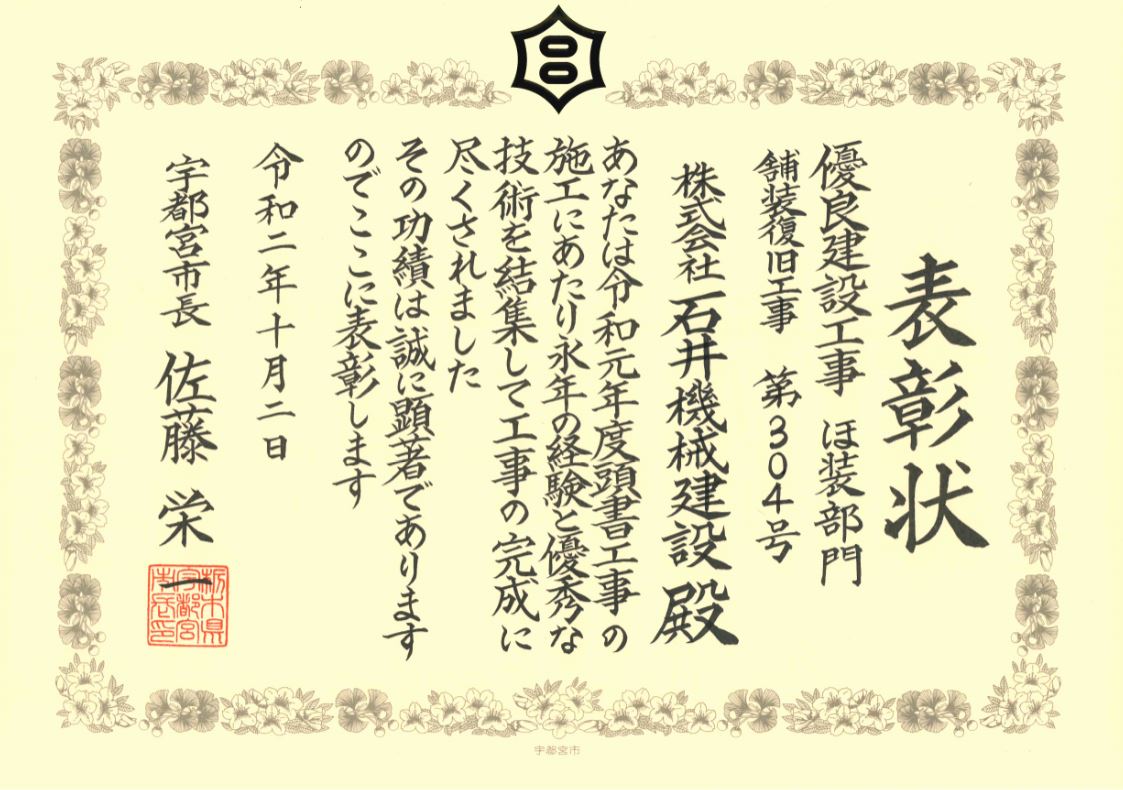 表彰状
優良建設工事 ほ装部門
舗装復旧工事 第304号
株式会社石井機械建設 殿
あなたは令和元年度頭書工事の
施工にあたり永年の経験と優秀な
技術を結集して工事の完成に
尽くされました
その功績は誠に顕著であります
のでここに表彰します
令和二年十月二日
宇都宮市長 佐藤栄一
栃木県
宇都宮
市長印
宇都宮市